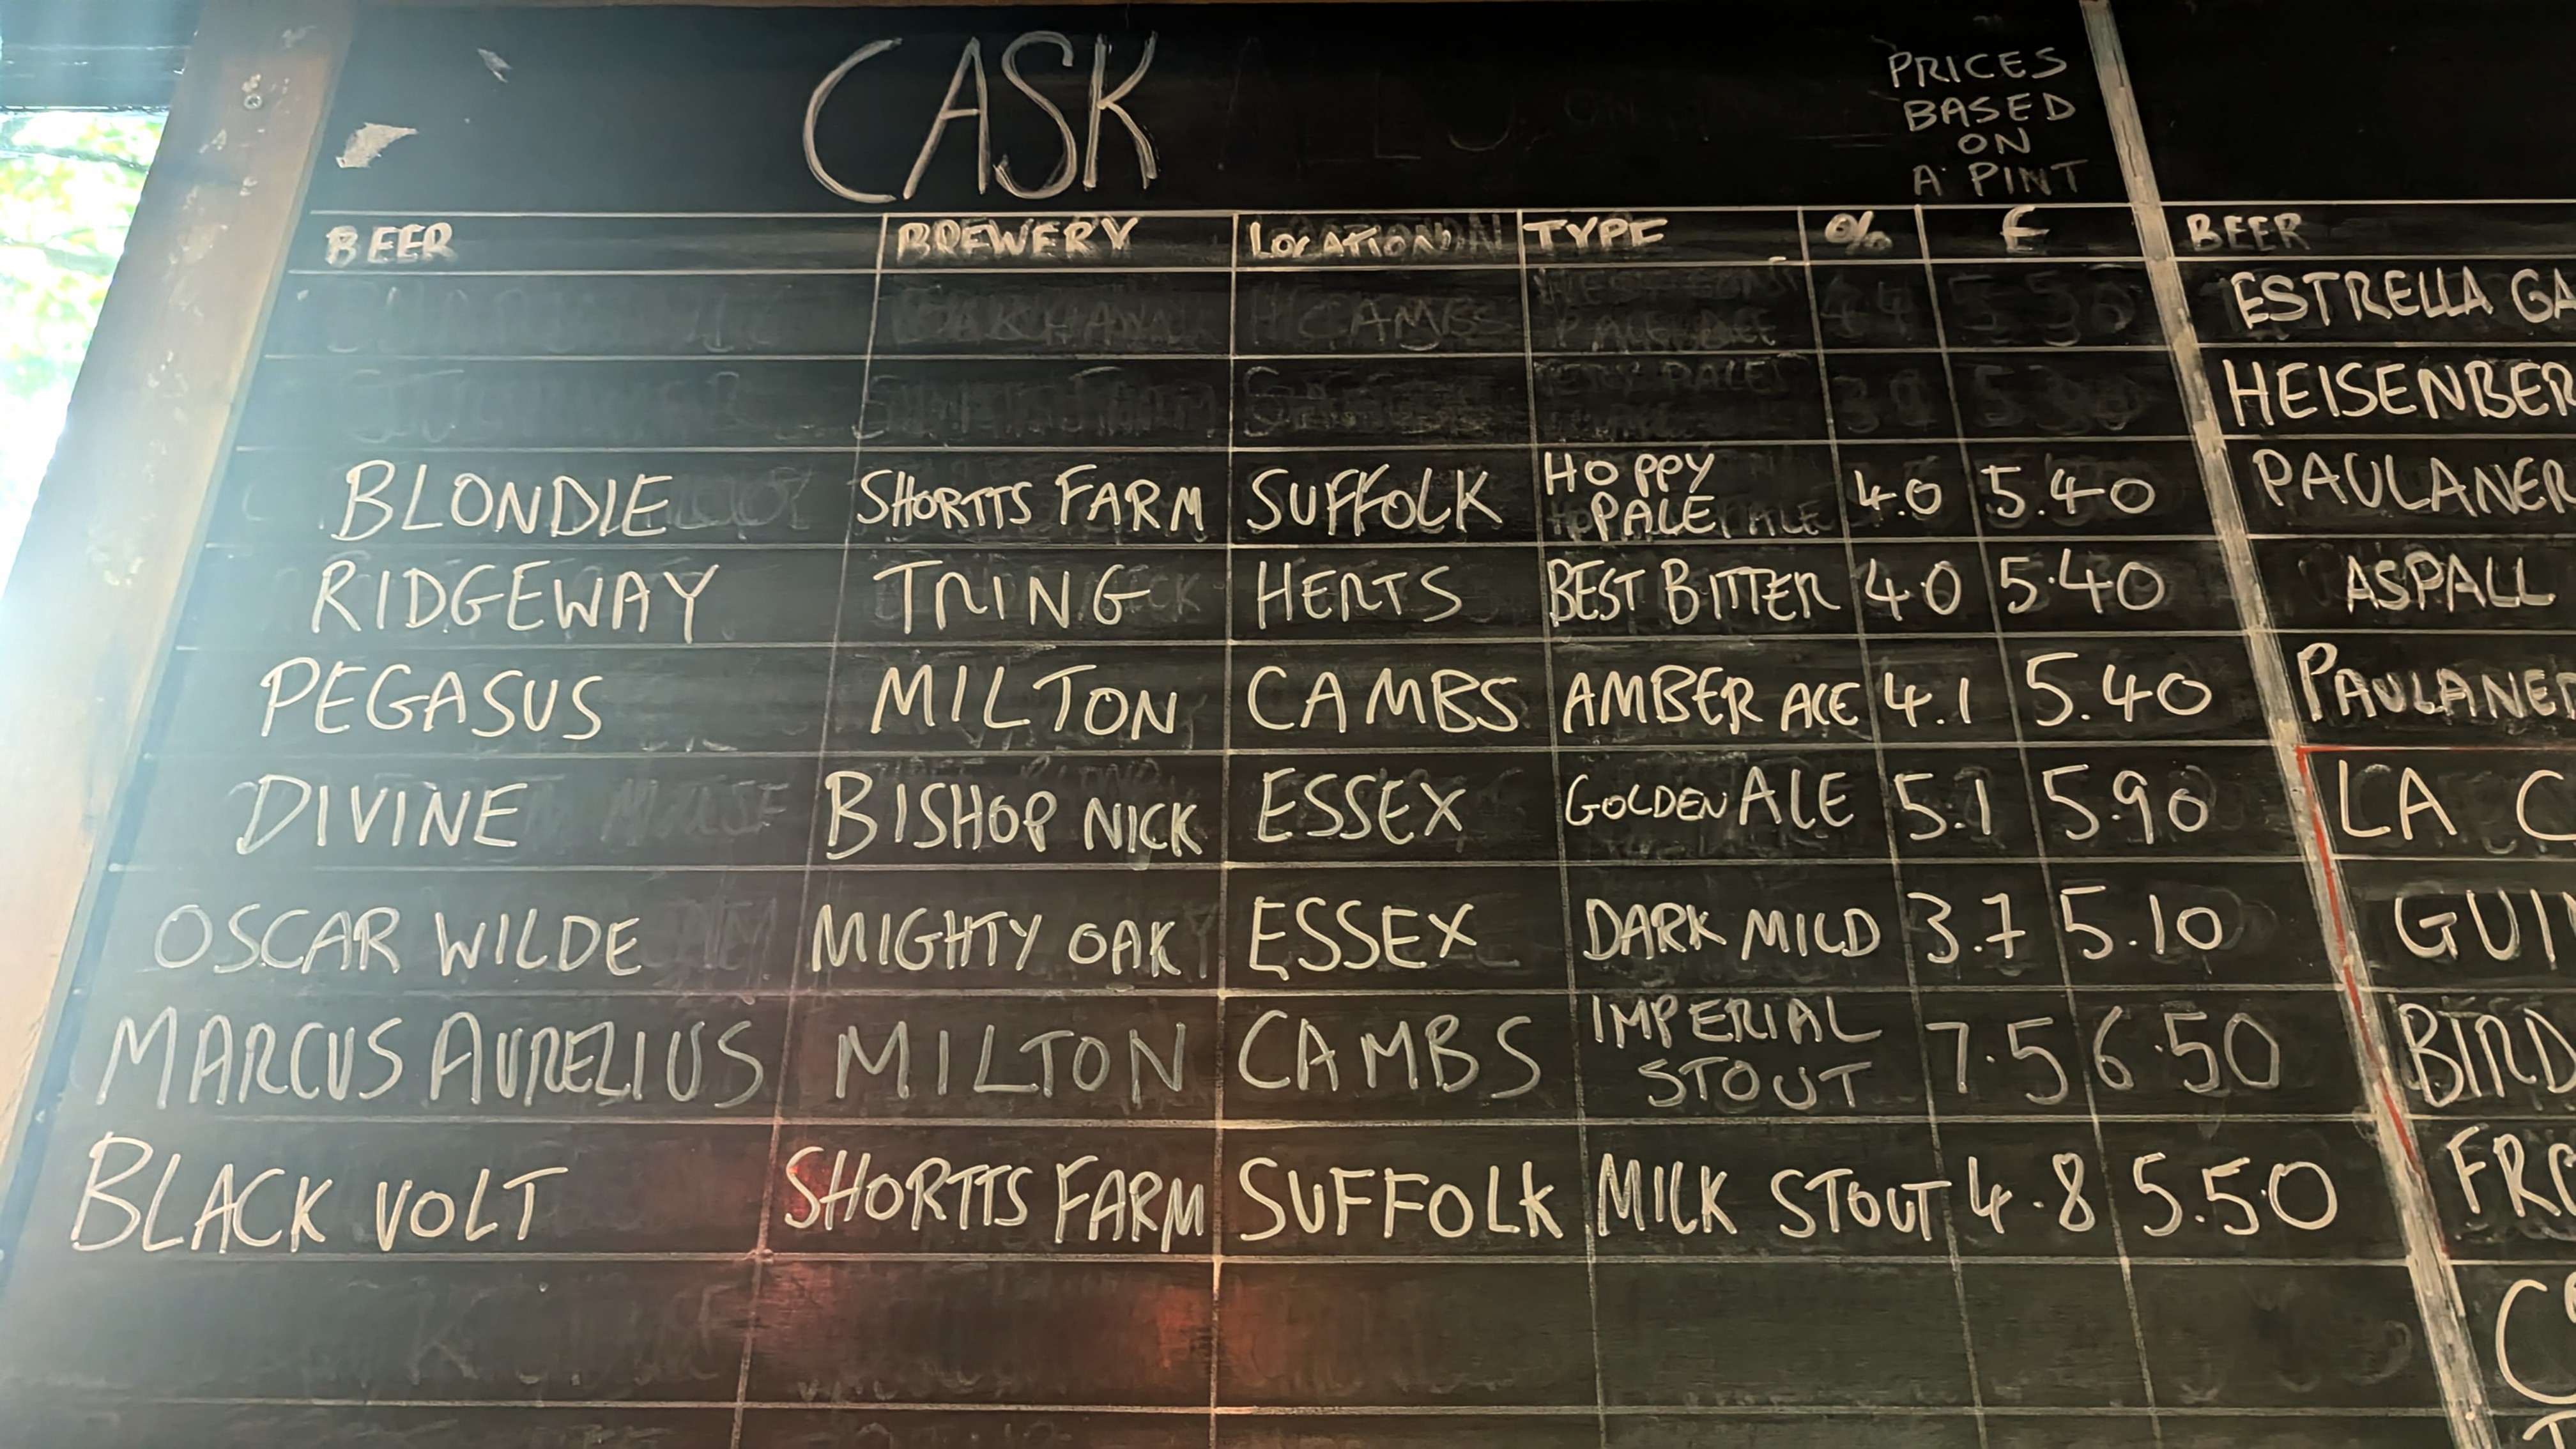 CASK
PRICES
BASED
ON
A PINT
BEER BREWERY LOCATION TYPE % £
BLONDIE SHORTTS FARM SUFFOLK HOPPY PALE 4.0 5.40
RIDGEWAY TRING HERTS BEST BITTER 4.0 5.40
PEGASUS MILTON CAMBS AMBER ALE 4.1 5.40
DIVINE BISHOP NICK ESSEX GOLDEN ALE 5.1 5.90
OSCAR WILDE MIGHTY OAK ESSEX DARK MILD 3.7 5.10
MARCUS AURELIUS MILTON CAMBS IMPERIAL STOUT 7.5 6.50
BLACK VOLT SHORTTS FARM SUFFOLK MILK STOUT 4.8 5.50
BEER
ESTRELLA GA
HEISENBER
PAULANER
ASPALL
PAULANER
LA C
GUI
BIRD
FRO